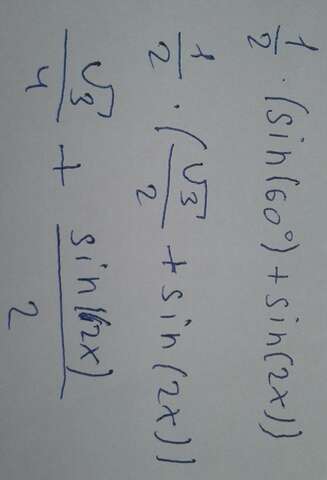 1/2 · (sin(60°) + sin(2x))
1/2 · (√3/2 + sin(2x))
√3/4 + sin(2x)/2